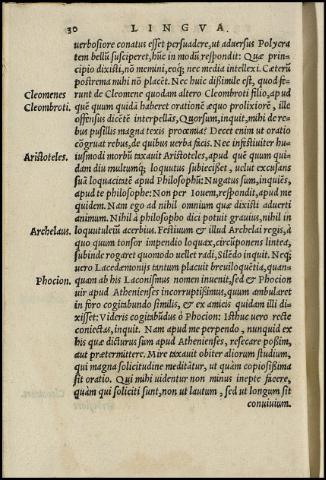 30 LINGVA.
uerbosiore conatus esset persuadere, ut aduersus Polycra
tem bellũ susciperet, hũc in modũ respondit: Quæ prin-
cipio dixisti, nõ memini, eoq; nec media intellexi. Cæterũ
postrema mihi nõ placẽt. Nec huic dißimile est, quod fe-
Cleomenes runt de Cleomene quodam altero Cleombroti filio, apud
Cleombroti. quẽ quum quidã haberet orationẽ æquo prolixiorẽ, ille
offensus dicẽtẽ interpellãs, Quorsum, inquit, mihi de re-
bus pusillis magna texis proœmia? Decet enim ut oratio
cõgruat rebus, de quibus uerba facis. Nec infestiuiter hu-
Aristoteles. iusmodi morbũ taxauit Aristoteles, apud quẽ quum qui-
dam diu multumq; loquutus subiecißet, uelut excusans
suã loquacitatẽ apud Philosophũ: Nugatus sum, inquiẽs,
apud te philosophe: Non per Iouem, respondit, apud me
quidem. Nam ego ad nihil omnium quæ dixisti aduerti
animum. Nihil à philosopho dici potuit grauius, nihil in
Archelaus. loquutuleiũ acerbius. Festiuum & illud Archelai regis, à
quo quum tonsor impendio loquax, circũponens lintea,
subinde rogaret quomodo uellet radi, Silẽdo inquit. Neq;
uero Lacedæmonijs tantum placuit breuiloquẽtia, quan-
Phocion. quam ab his Laconismus nomen inuenit, sed & Phocion
uir apud Athenienses incorruptißimus, quum ambularet
in foro cogitabundo similis, & ex amicis quidam illi di-
xisset: Videris cogitabũdus ô Phocion: Isthuc uero recte
coniectas, inquit. Nam apud me perpendo, nunquid ex
his quæ dicturus sum apud Athenienses, resecare poßim,
aut prætermittere. Mire taxauit obiter aliorum studium,
qui magna solicitudine meditãtur, ut quàm copiosißima
sit oratio. Qui mihi uidentur non minus inepte facere,
quàm qui soliciti sunt, non ut lautum, sed ut longum sit
conuiuium.